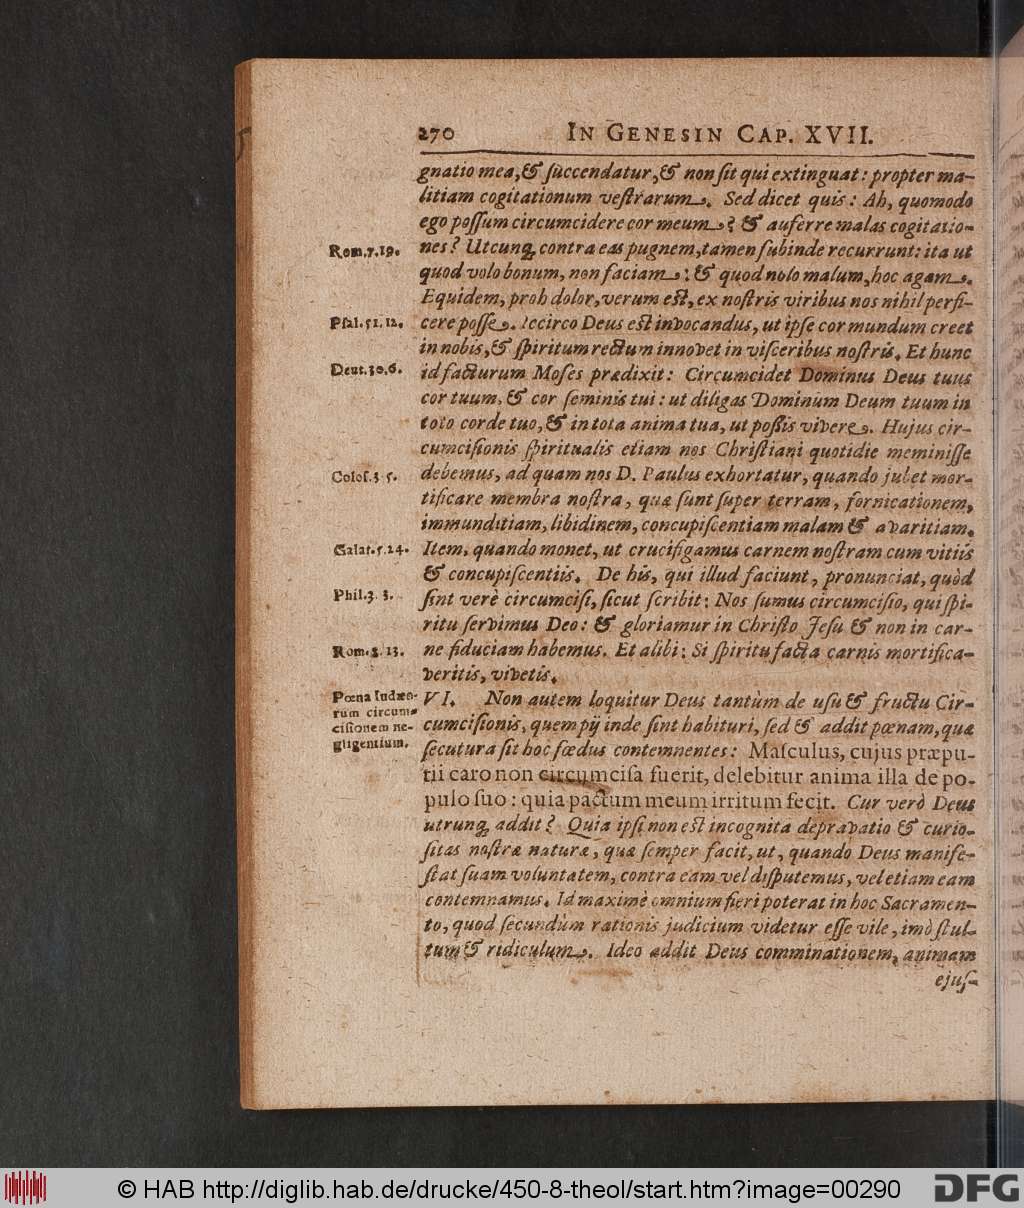 270 IN GENESIN CAP. XVII.
gnatio mea, & succendatur, & non sit qui extinguat: propter ma-
litiam cogitationum vestrarum. Sed dicet quis: Ah, quomodo
ego possum circumcidere cor meum? & auferre malas cogitatio-
Rom. 7. 19. nes? Utcunq; contra eas pugnem, tamen subinde recurrunt: ita ut
quod volo bonum, non faciam: & quod nolo malum, hoc agam.
Equidem, proh dolor, verum est, ex nostris viribus nos nihil perfi-
Psal. 51. 12. cere posse. Iccirco Deus est invocandus, ut ipse cor mundum creet
in nobis, & spiritum rectum innovet in visceribus nostris. Et hunc
Deut. 30. 6. id facturum Moses prædixit: Circumcidet Dominus Deus tuus
cor tuum, & cor seminis tui: ut diligas Dominum Deum tuum in
toto corde tuo, & in tota anima tua, ut possis vivere. Hujus cir-
cumcisionis spiritualis etiam nos Christiani quotidie meminisse
Colos. 3. 5. debemus, ad quam nos D. Paulus exhortatur, quando jubet mor-
tificare membra nostra, quæ sunt super terram, fornicationem,
immunditiam, libidinem, concupiscentiam malam & avaritiam.
Galat. 5. 24. Item, quando monet, ut crucifigamus carnem nostram cum vitiis
& concupiscentiis. De his, qui illud faciunt, pronunciat, quòd
Phil. 3. 3. sint verè circumcisi, sicut scribit: Nos sumus circumcisio, qui spi-
ritu servimus Deo: & gloriamur in Christo Jesu & non in car-
Rom. 8. 13. ne fiduciam habemus. Et alibi: Si spiritu facta carnis mortifica-
veritis, vivetis.
Pœna Iudæo-
rum circum-
cisionem ne-
gligentium.
VI. Non autem loquitur Deus tantùm de usu & fructu Cir-
cumcisionis, quem pij inde sint habituri, sed & addit pœnam, quæ
secutura sit hoc fœdus contemnentes: Masculus, cujus præpu-
tii caro non circumcisa fuerit, delebitur anima illa de po-
pulo suo: quia pactum meum irritum fecit. Cur verò Deus
utrunq; addit? Quia ipsi non est incognita depravatio & curio-
sitas nostræ naturæ, quæ semper facit, ut, quando Deus manife-
stat suam voluntatem, contra eam vel disputemus, vel etiam eam
contemnamus. Id maximè omnium fieri poterat in hoc Sacramen-
to, quod secundùm rationis judicium videtur esse vile, imò stul-
tum & ridiculum. Ideo addit Deus comminationem, animam
ejus-
© HAB http://diglib.hab.de/drucke/450-8-theol/start.htm?image=00290 DFG